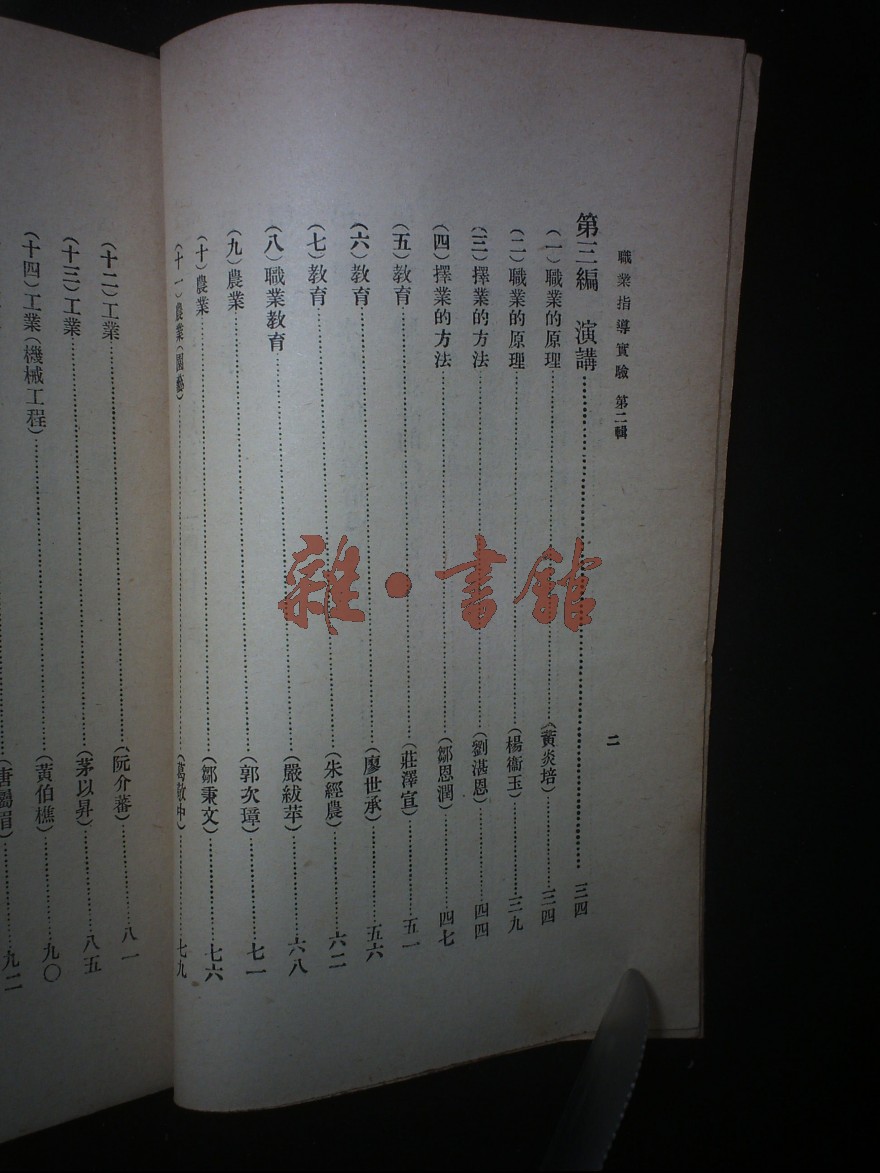 職業指導實驗 第二輯
二
第三編 演講…………三四
(一)職業的原理…………(黃炎培)…………三四
(二)職業的原理…………(楊衞玉)…………三九
(三)擇業的方法…………(劉湛恩)…………四四
(四)擇業的方法…………(鄒恩潤)…………四七
(五)教育…………(莊澤宣)…………五一
(六)教育…………(廖世承)…………五六
(七)教育…………(朱經農)…………六二
(八)職業教育…………(嚴紱苹)…………六八
(九)農業…………(郭次璋)…………七一
(十)農業…………(鄒秉文)…………七六
(十一)農業(園藝)…………(葛敬中)…………七九
(十二)工業…………(阮介蕃)…………八一
(十三)工業…………(茅以昇)…………八五
(十四)工業(機械工程)…………(黃伯樵)…………九〇
…………九二
雜·書館